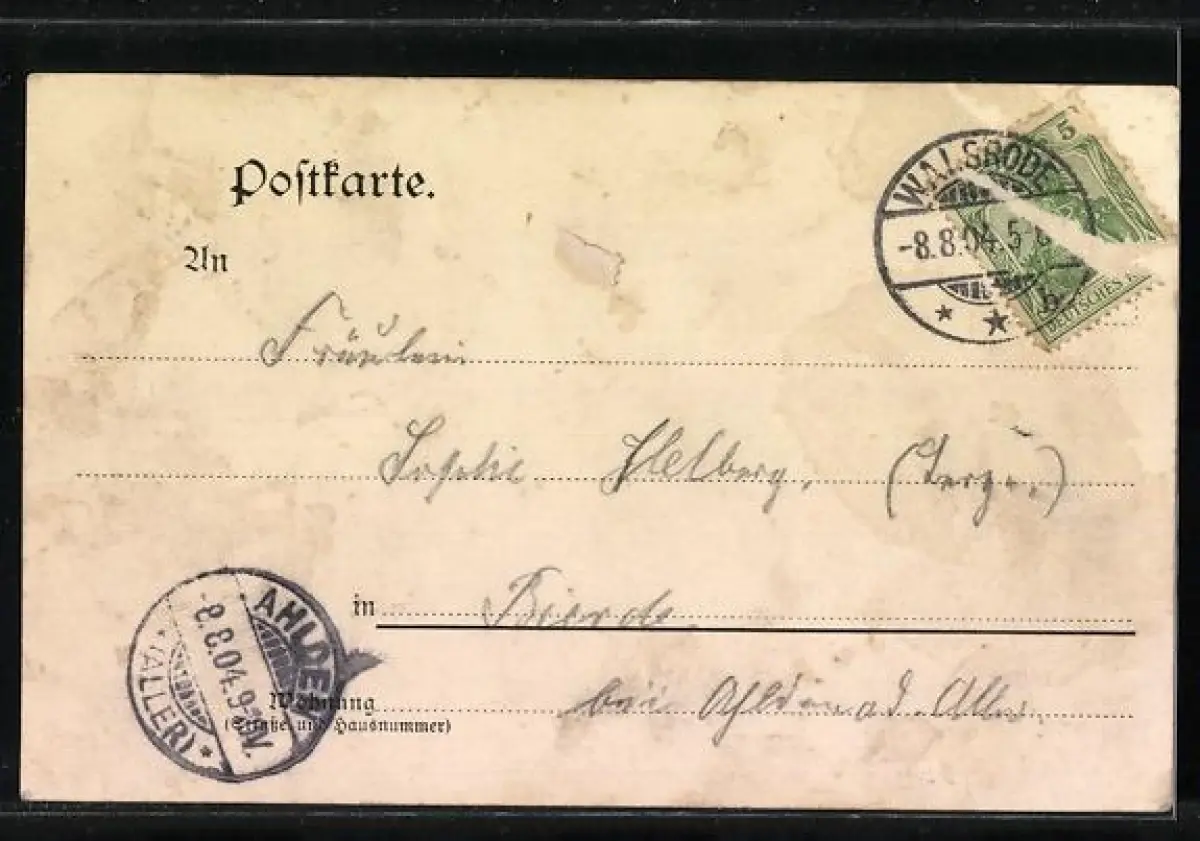 Postkarte.
WALSRODE
-8.8.04. 5-
b
5
DEUTSCHES
An
Fräulein
Sophie Helberg,
in Bierde
AHLDEN
(ALLER)
8.8.04. 9-
Wohnung
(Straße und Hausnummer)
bei Ahlden a.d. Aller.